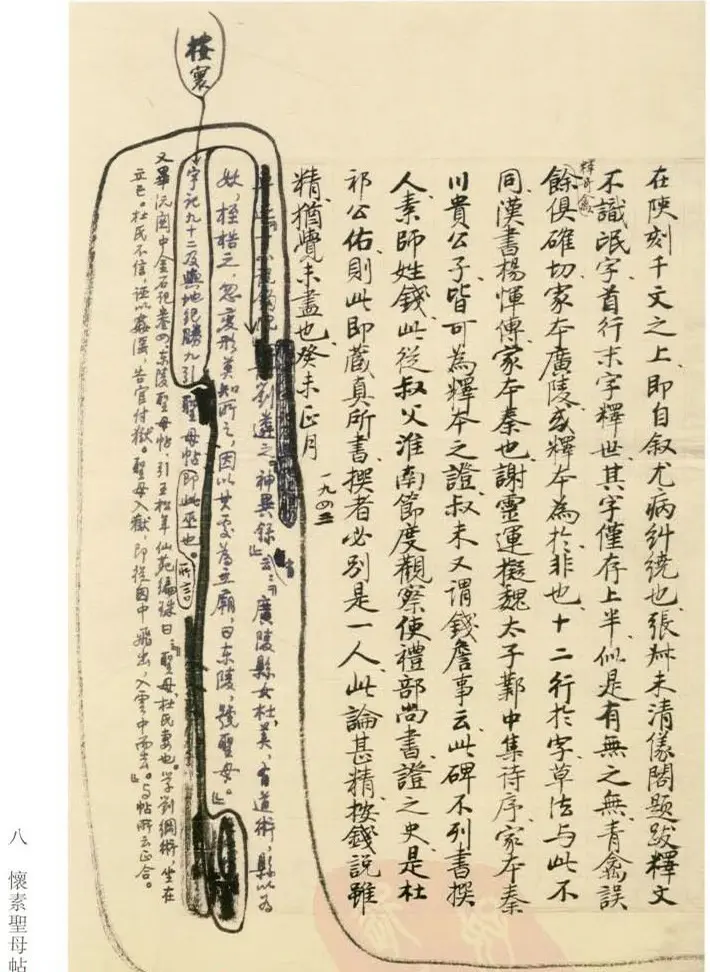 在陝刻千文之上即自叙尤病糾繞也張叔未清儀閣題跋釋文
不識泯字首行末字釋世其字僅存上半似是有無之無青龕誤
釋奇龕
餘俱確切家本廣陵或釋本為於非也十二行於字草法与此不
同漢書楊惲傳家本秦也謝靈運擬魏太子鄴中集詩序家本秦
川貴公子皆可為釋本之證叔未又謂錢詹事云此碑不列書撰
人素師姓錢此從叔父淮南節度觀察使禮部尚書證之史是杜
祁公佑則此即藏真所書撰者必別是一人此論甚精按錢說雖
精猶覺未盡也癸未正月
一九四三
劉遴之神異錄云廣陵縣女杜美有道術縣以為
妖桎梏之忽變形莫知所之因以其處為立廟曰東陵號聖母
按寰
宇記九十二及輿地紀勝九引聖母帖即此巫也
所言
又畢沅關中金石記卷四東陵聖母帖引王松年仙苑編珠曰聖母杜氏妻也學劉綱術坐在
立亡杜氏不信誣以姦淫告官付獄聖母入獄即從囱中飛出入雲中而去与帖所云正合
八 懷素聖母帖